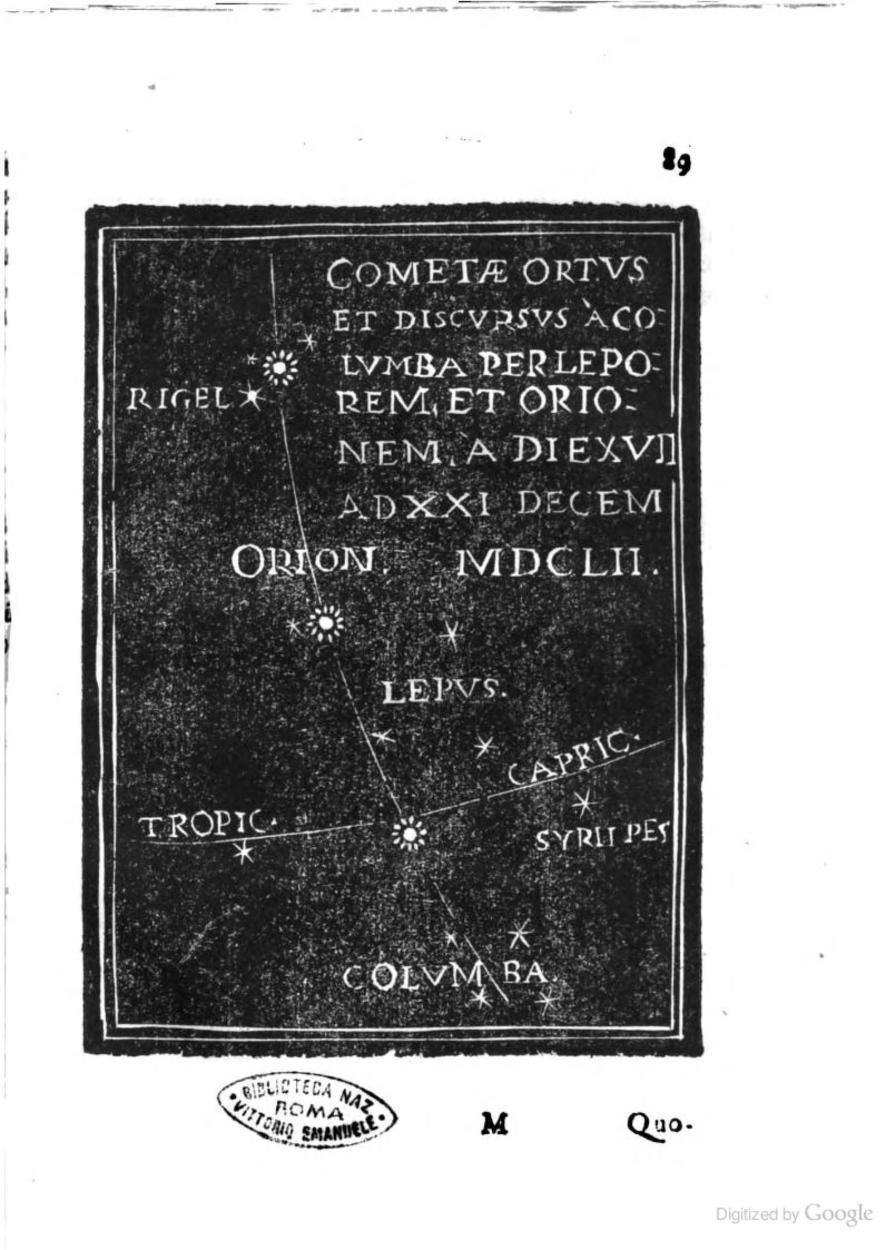 89
COMETÆ ORTVS
ET DISCVRSVS A CO-
LVMBA PER LEPO-
RIGEL
REM, ET ORIO-
NEM, A DIE XVII
AD XXI DECEM
ORION. MDCLII.
LEPVS.
CAPRIC.
TROPIC.
SYRII PES
COLVMBA.
BIBLIOTECA NAZ.
ROMA
VITTORIO EMANUELE
M Quo-
Digitized by Google